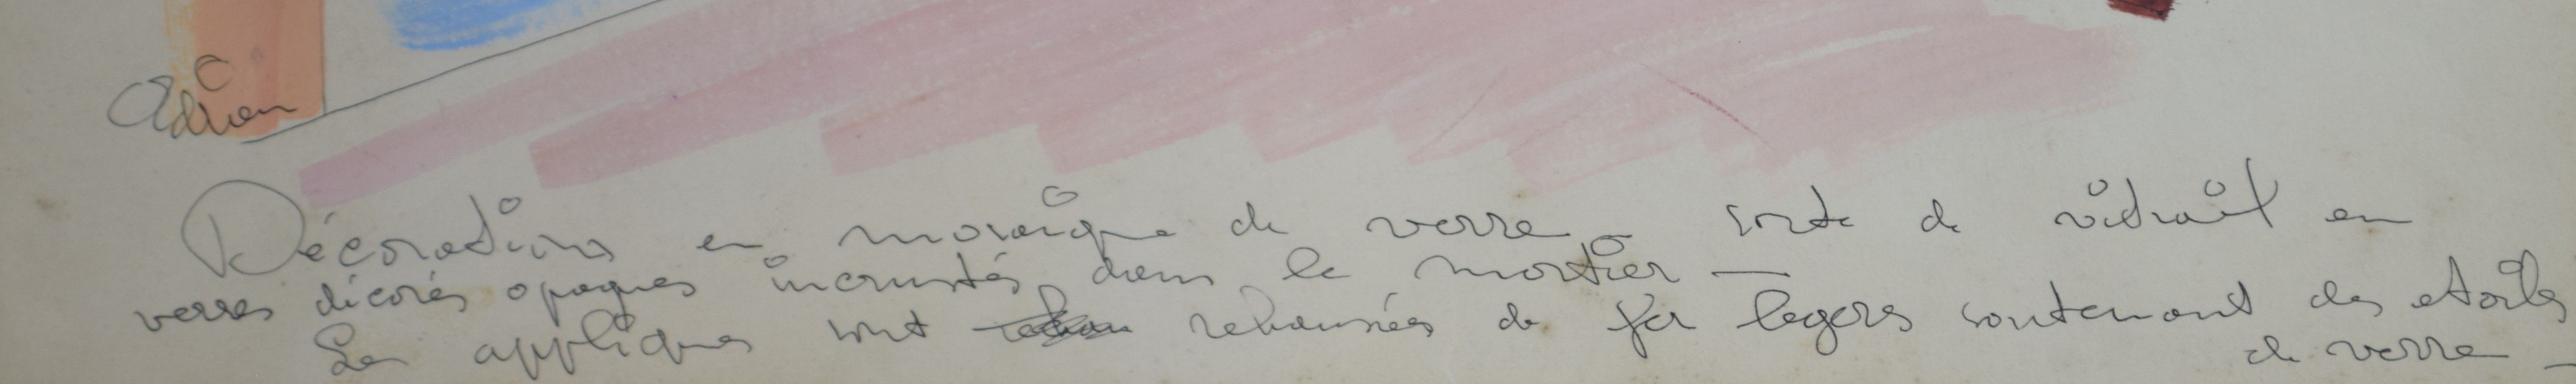 Adrien
Décorations en mosaïque de verre - sorte de vitrail en
verres décorés opaques incrustés dans le mortier —
Les appliques sont rehaussées de fer legers soutenant des etoiles
de verre -